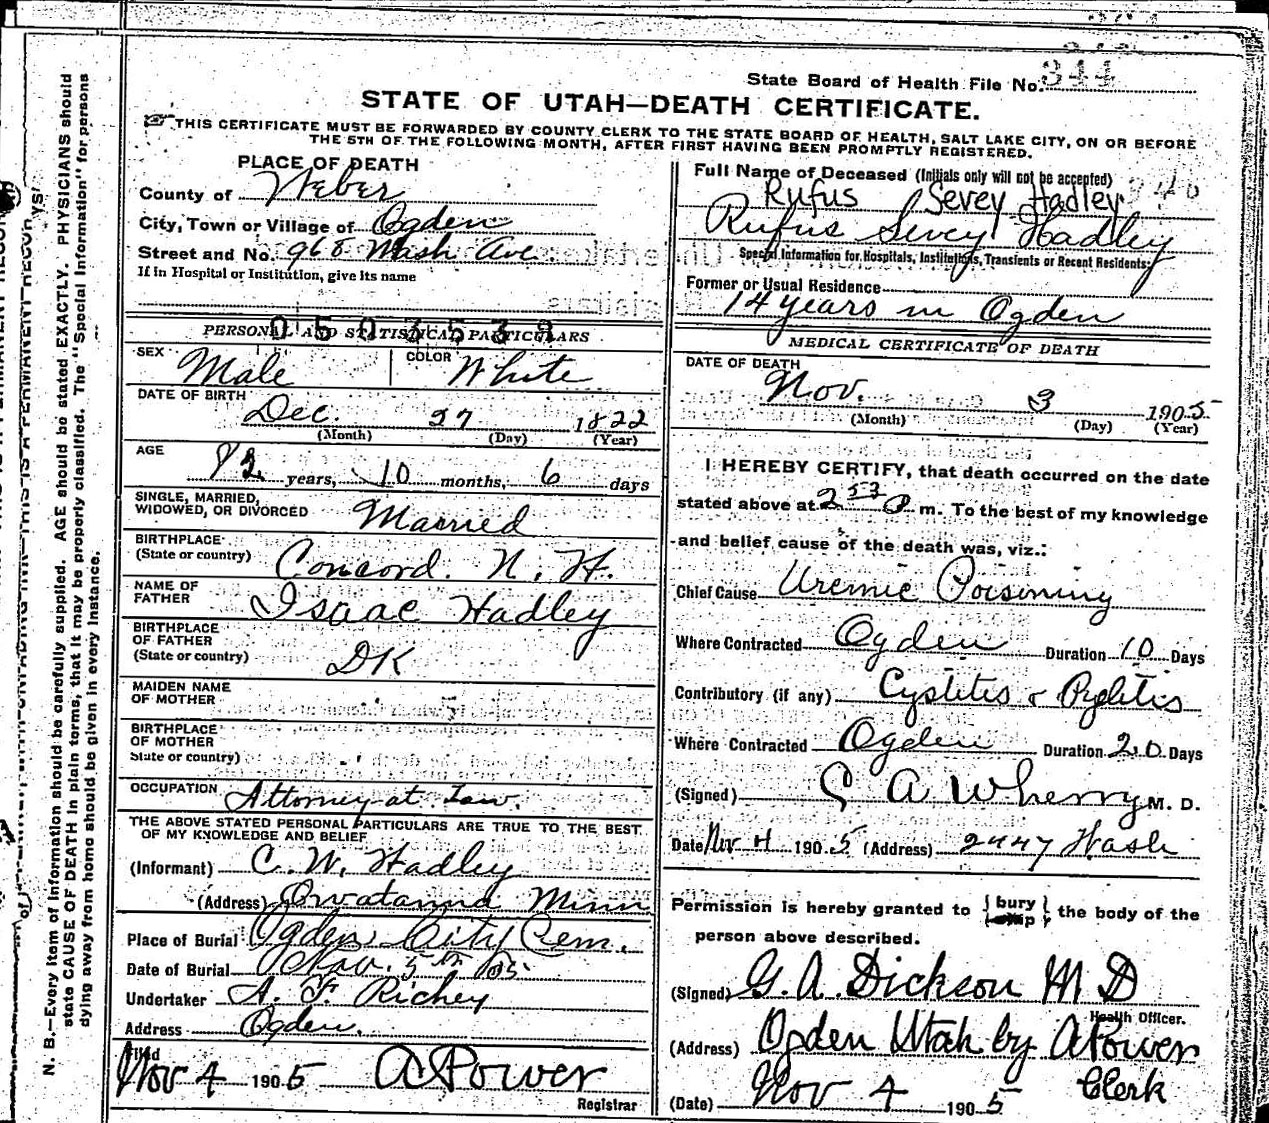 State Board of Health File No. 344
STATE OF UTAH—DEATH CERTIFICATE.
THIS CERTIFICATE MUST BE FORWARDED BY COUNTY CLERK TO THE STATE BOARD OF HEALTH, SALT LAKE CITY, ON OR BEFORE
THE 5TH OF THE FOLLOWING MONTH, AFTER FIRST HAVING BEEN PROMPTLY REGISTERED.
PLACE OF DEATH
County of Weber
City, Town or Village of Ogden
Street and No. 968 Wash Ave
If in Hospital or Institution, give its name
0503539
PERSONAL AND STATISTICAL PARTICULARS
SEX Male COLOR White
DATE OF BIRTH
Dec. 27 1822
(Month) (Day) (Year)
AGE
82 years, 10 months, 6 days
SINGLE, MARRIED,
WIDOWED, OR DIVORCED Married
BIRTHPLACE
(State or country) Concord. N. H.
NAME OF
FATHER Isaac Hadley
BIRTHPLACE
OF FATHER
(State or country) DK
MAIDEN NAME
OF MOTHER
BIRTHPLACE
OF MOTHER
State or country)
OCCUPATION Attorney at Law.
THE ABOVE STATED PERSONAL PARTICULARS ARE TRUE TO THE BEST
OF MY KNOWLEDGE AND BELIEF
(Informant) C. W. Hadley
(Address) Owatanna Minn
Place of Burial Ogden City Cem.
Date of Burial Nov. 5th 05
Undertaker A. F. Richey
Address Ogden.
Filed
Nov 4 1905 A Power
Registrar
Full Name of Deceased (Initials only will not be accepted)
Rufus Sevey Hadley
Rufus Sevey Hadley
Special Information for Hospitals, Institutions, Transients or Recent Residents:
Former or Usual Residence
14 years in Ogden
MEDICAL CERTIFICATE OF DEATH
DATE OF DEATH
Nov. 3 1905
(Month) (Day) (Year)
I HEREBY CERTIFY, that death occurred on the date
stated above at 2 53 P m. To the best of my knowledge
and belief cause of the death was, viz.:
Chief Cause Uremic Poisoning
Where Contracted Ogden Duration 10 Days
Contributory (if any) Cystitis & Pyelitis
Where Contracted Ogden Duration 20 Days
(Signed) A Wherry M. D.
Date Nov 4 1905 (Address) 2447 Wash
Permission is hereby granted to { bury
ship } the body of the
person above described.
(Signed) G. A. Dickson M D
Health Officer.
(Address) Ogden Utah by A Power
Clerk
(Date) Nov 4 1905
N. B.—Every item of information should be carefully supplied. AGE should be stated EXACTLY. PHYSICIANS should
state CAUSE OF DEATH in plain terms, that it may be properly classified. The "Special Information" for persons
dying away from home should be given in every instance.